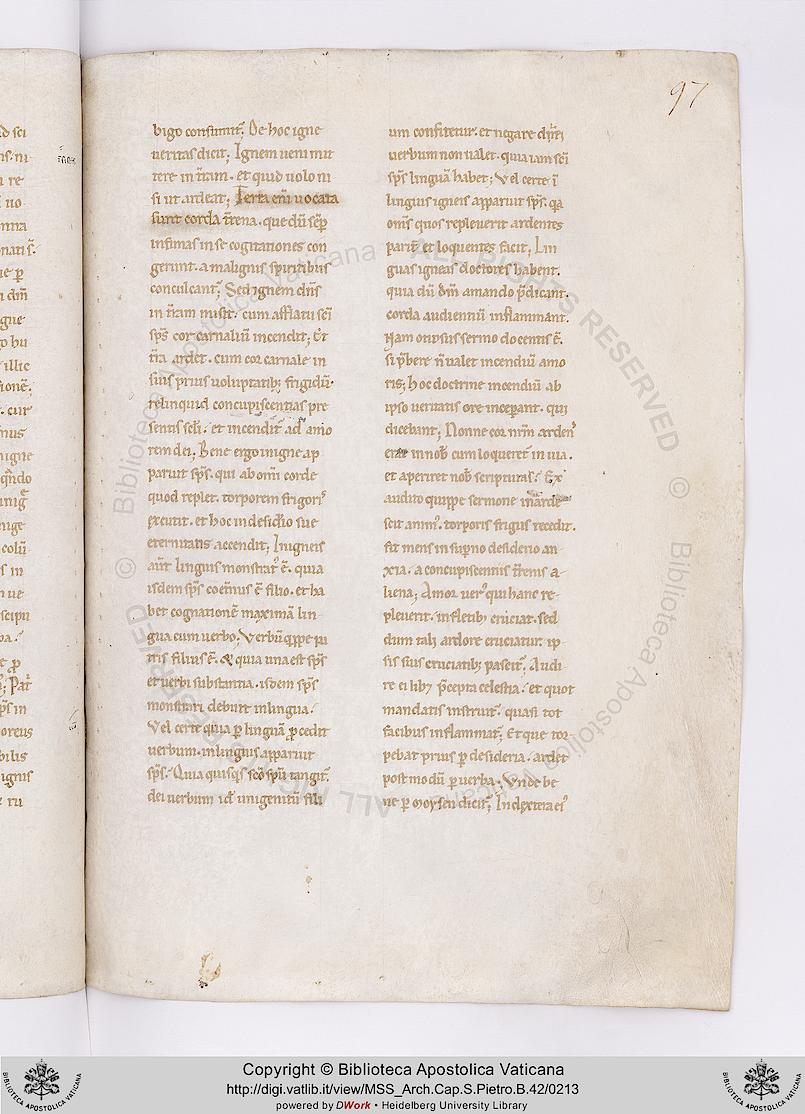 97
bigo consumit̃. De hoc igne
ueritas dicit; Ignem ueni mit
tere in t̃ram. et quid uolo ni
si ut ardeat; Terra eni͂ uocata
sunt corda t̃rena. que dũ sẽp
infimas in se cogitationes con
gerunt. a malignis spiritibus
conculcant̃; Sed ignem dñs
in t̃ram misit. cum afflatu sc̃i
sp̃s cor carnaliũ incendit; Et
t̃ra ardet. cum cor carnale in
suis prius uoluptatib; frigidũ.
relinquid concupiscentias pre
sentis sc̃li. et incendit̃ ad amo
rem dei; Bene ergo in igne ap
paruit sp̃s. qui ab omi͂ corde
quod replet. torporem frigoris
excutit. et hoc in desiderio sue
eternitatis accendit; In igneis
aũt linguis monstrat᾿ ẽ. quia
isdem sp̃s coet̃nus ẽ filio. et ha
bet cognationẽ maximã lin
gua cum uerbo; Verbũ q̃ppe pa
tris filius ẽ. & quia una est sp̃s
et uerbi substantia. isdem sp̃s
monstrari debuit in lingua.
Vel certe quia p̱ linguã p̱cedit
uerbum. in linguis apparuit
sp̃s. Quia quisq̃s sc̃o sp̃u tangit̃.
dei uerbum id᾿ unigenitũ filii
um confitetur. et negare dei
uerbum non ualet. quia iam sc̃i
sp̃s linguã habet; Vel certe ĩ
linguis igneis apparuit sp̃s. q̃a
om̃s quos repleuerit ardentes
parit̃ et loquentes facit; Lin
guas igneas doctores habent.
quia dũ dm̃ amando p̃dicant.
corda audientiũ inflammant.
Nam otiosus sermo docentis ẽ.
si p̃bere ñ ualet incendiũ amo
ris; hoc doctrine incendiũ ab
ipso ueritatis ore inceperant. qui
dicebant; Nonne cor nr̃m arden᾿
erat in nob̃ cum loqueret̃ in uia.
et aperiret nob̃ scripturas; Ex
audito quippe sermone inarde
scit anim᾿. torporis frigus recedit.
fit mens in sup̃no desiderio an
xia. a concupiscentiis t̃renis a-
liena; Amor uer᾿ qui hanc re-
pleuerit. in fletib; cruciat. sed
dum tali ardore cruciatur. ip-
sis suis cruciatib; pascit̃; Audi
re ei lib; p̃cepta celestia. et quot
mandatis instruit̃. quasi tot
facibus inflammat̃; Et que tor-
pebat prius p̱ desideria. ardet
post modũ p̱ uerba; Unde be
ne p̱ moysen dicit̃; In dextera ei᾿
Copyright © Biblioteca Apostolica Vaticana
http://digi.vatlib.it/view/MSS_Arch.Cap.S.Pietro.B.42/0213
powered by DWork • Heidelberg University Library